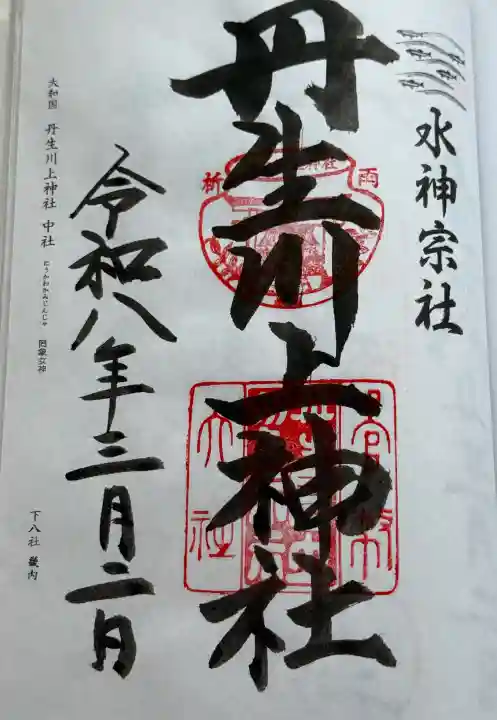 水神宗社
丹生川上神社
祈雨
官幣大社
令和八年三月二日
大和国 丹生川上神社 中社
にうかわかみじんじゃ
罔象女神
下八社 畿内